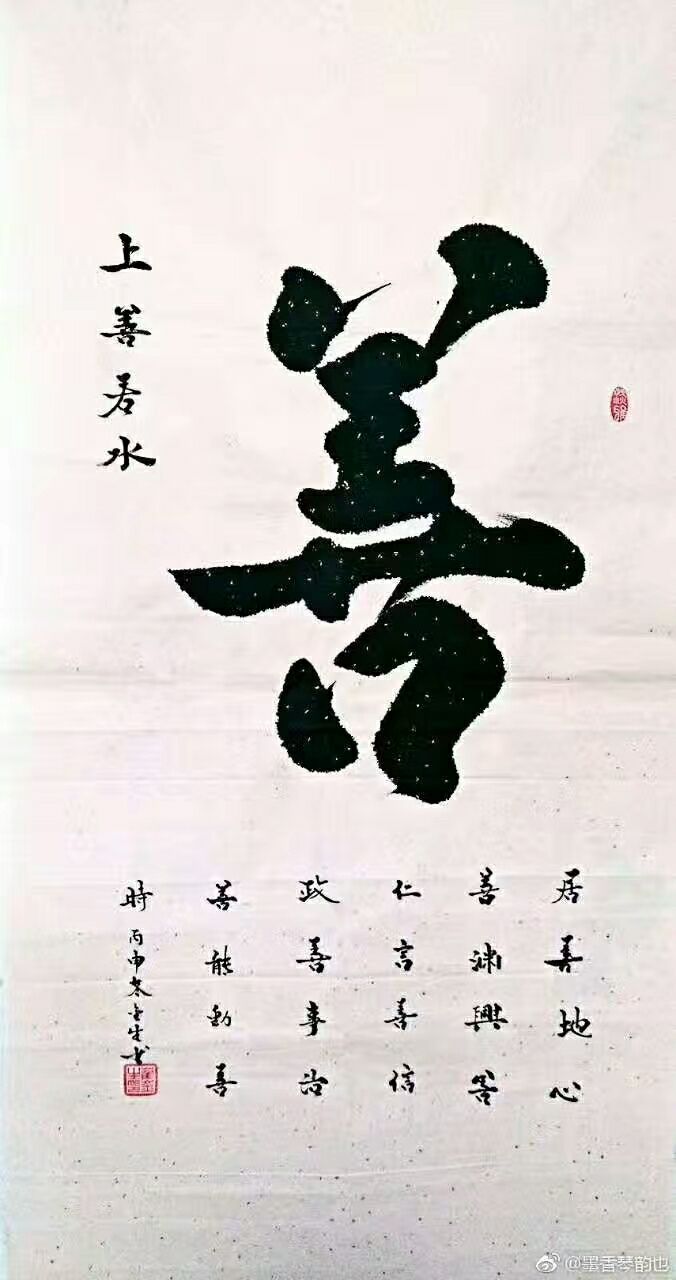 善
上善若水
居善地心
善渊興善
仁言善信
政善事治
善能動善
時
丙申冬
书
@墨香琴韵也